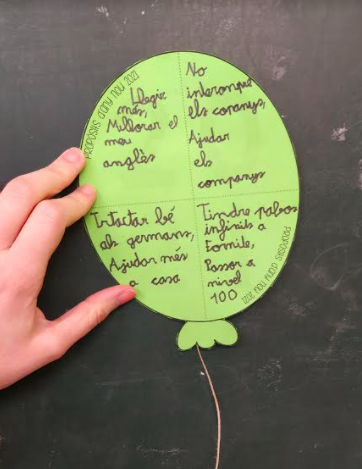 PROPÒSITS D'ANY NOU 2021
Llegir
més,
Millorar el
meu
anglès
No
els copanys,
Ajudar
els
companys
bé
als germans,
Ajudar més
a casa
Tindre pabos
infinits a
Fornite,
Passar a
nivel
100
PROPÒSITS D'ANY NOU 2021